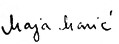 Maja Marić